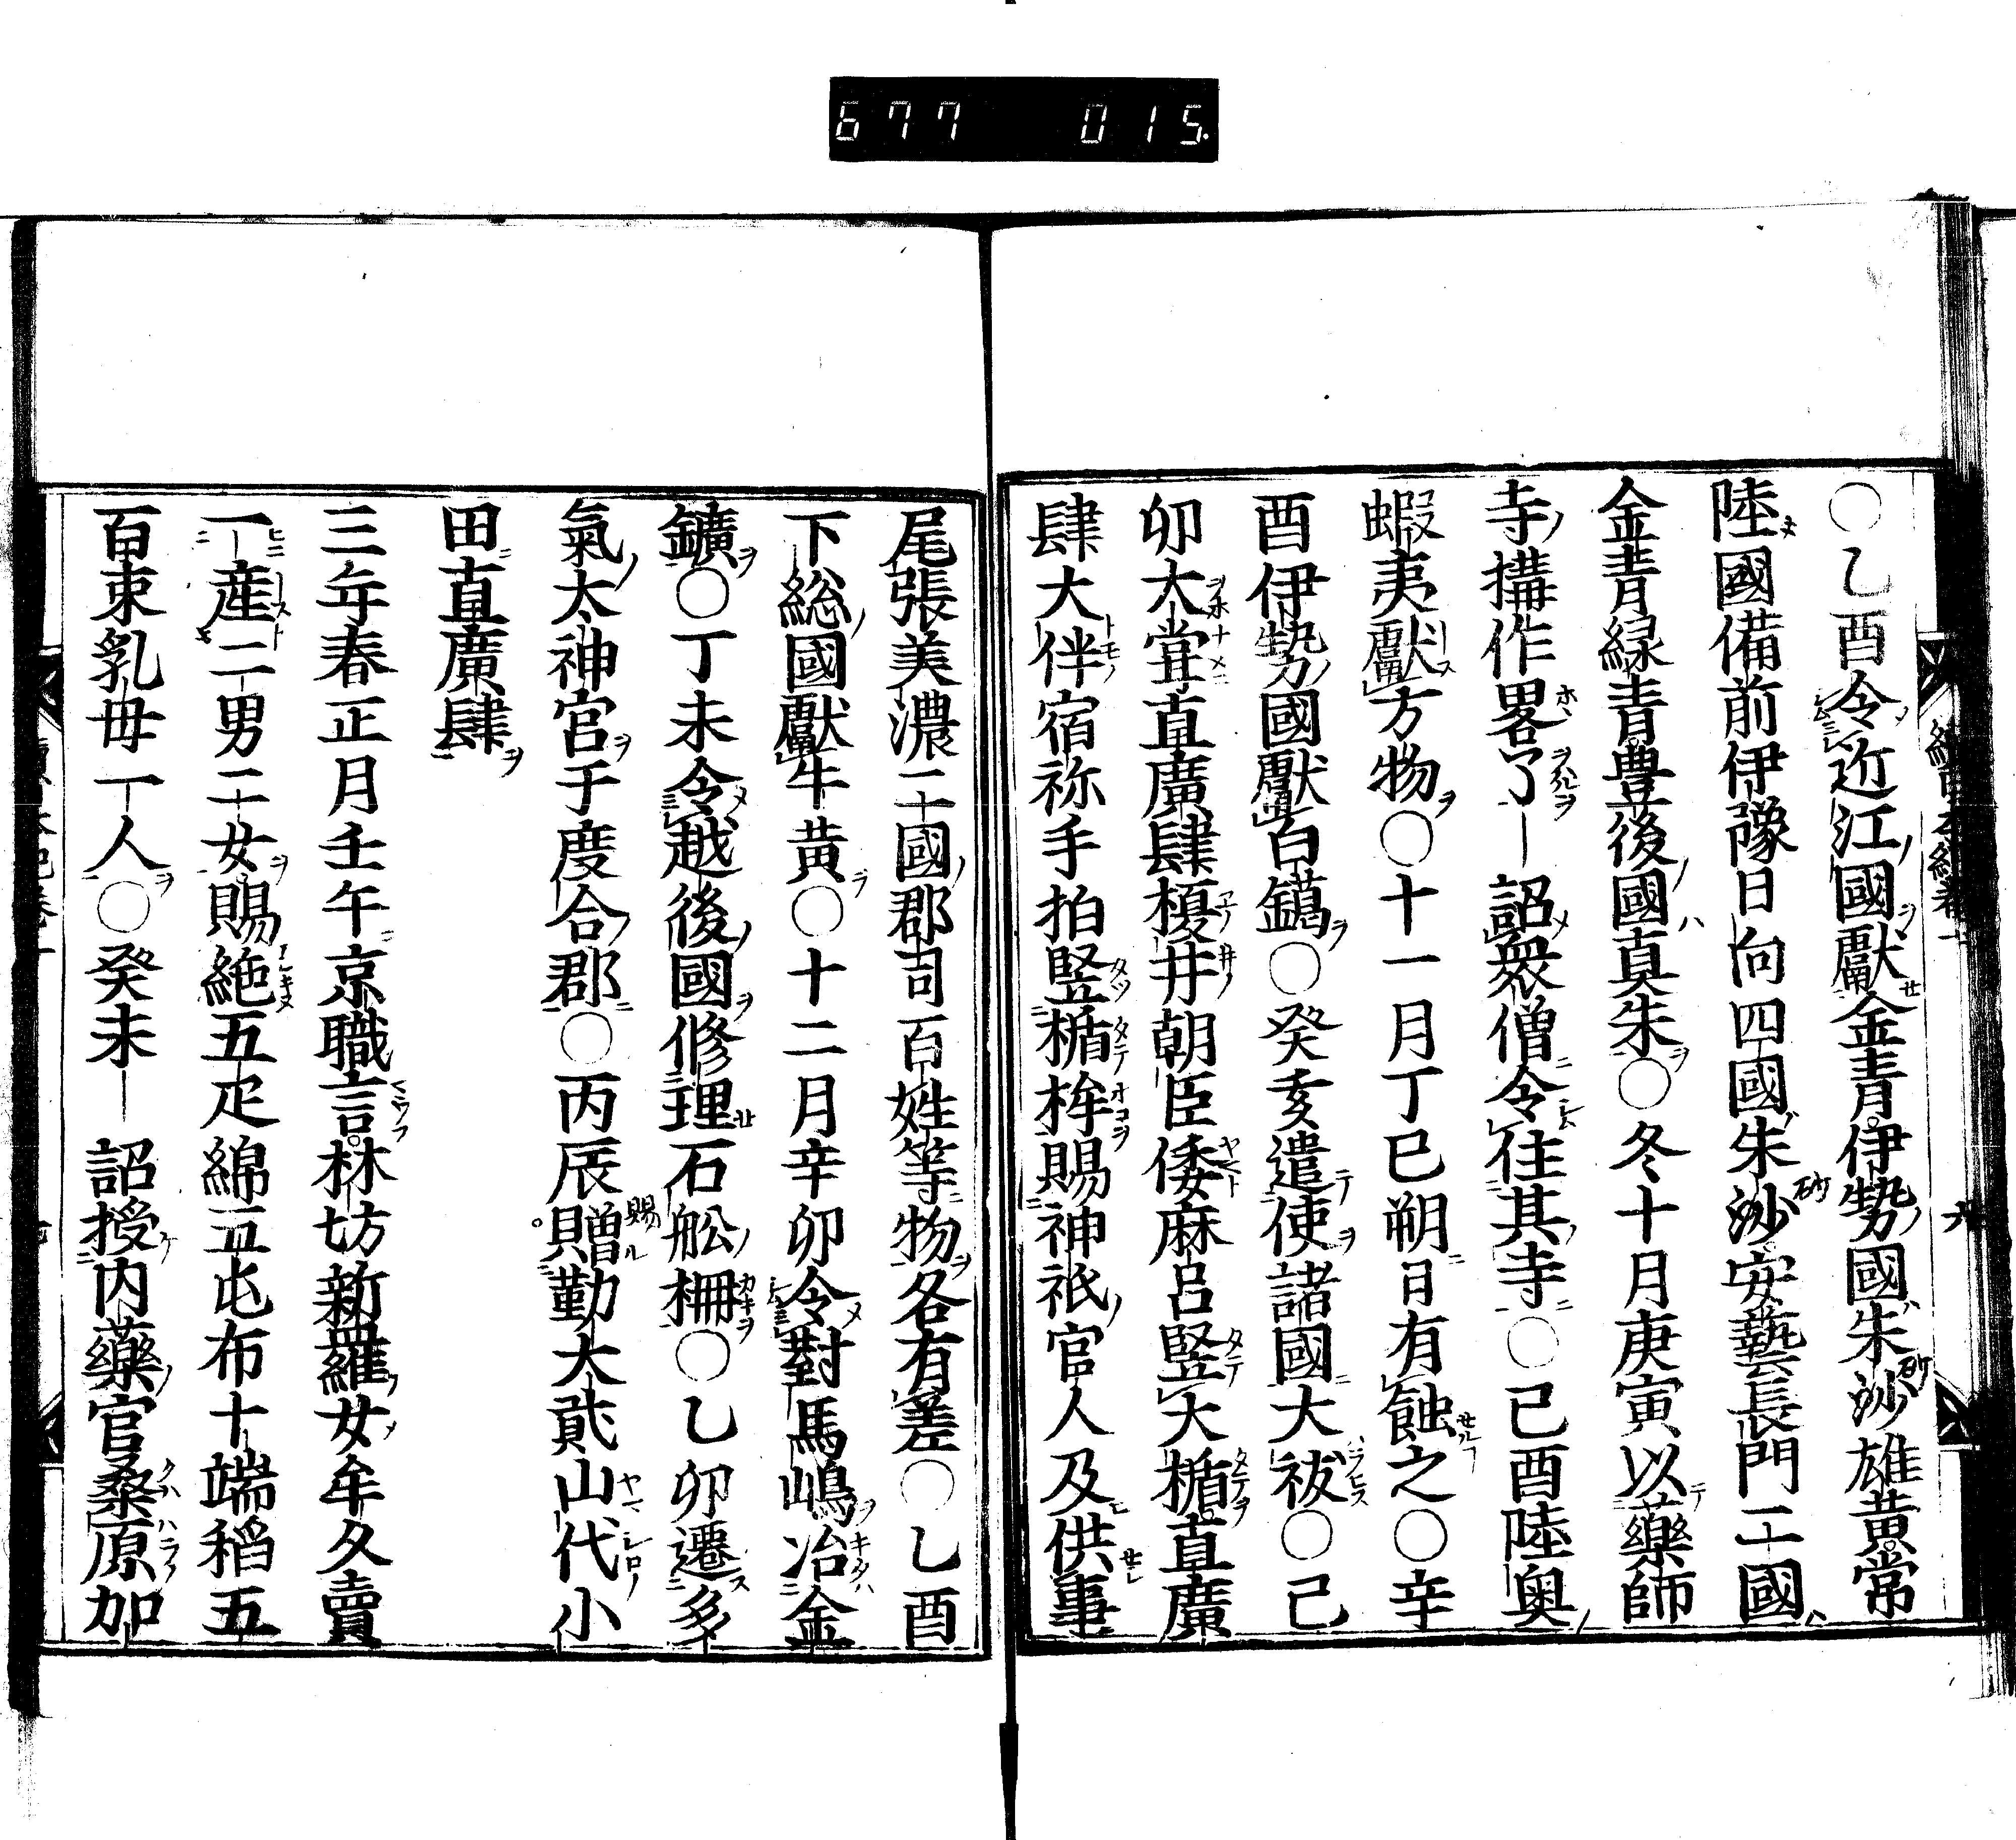 677 015.
○乙酉令近江國獻金青伊勢國朱沙雄黄常
陸國備前伊豫日向四國朱沙安藝長門二國
金青緑青豊後國真朱○冬十月庚寅以藥師
寺搆作畧了 詔衆僧令住其寺○己酉陸奥
蝦夷獻方物○十一月丁巳朔日有蝕之○辛
酉伊勢國獻白鑞○癸亥遣使諸國大祓○己
卯大甞直廣肆榎井朝臣倭麻呂竪大楯直廣
肆大伴宿祢手拍竪楯桙賜神祇官人及供事
尾張美濃二國郡司百姓等物各有差○乙酉
下総國獻牛黄○十二月辛卯令對馬嶋冶金
鑛○丁未令越後國修理石舩柵○乙卯遷多
氣太神官于度合郡○丙辰贈勤大貳山代小
田直廣肆
三年春正月壬午京職言林坊新羅女牟久賣
一産二男二女賜絁五疋綿五屯布十端稻五
百束乳母一人○癸未 詔授内藥官桑原加